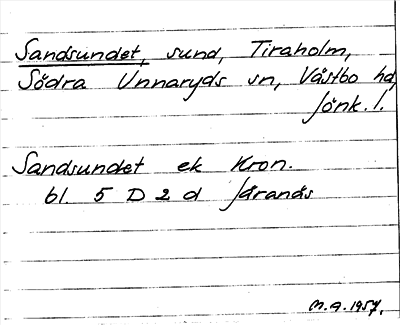 Sandsundet, sund, Tiraholm,
Södra Unnaryds sn, Västbo hd,
Jönk. l.
Sandsundet ek Kron.
bl 5 D 2 d Järanäs
M.A. 1957.